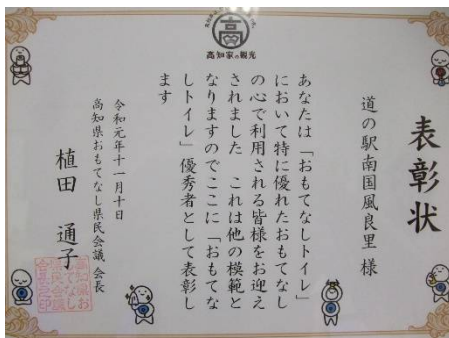 高知家の観光
表彰状
道の駅南国風良里 様
あなたは「おもてなしトイレ」
において特に優れたおもてなし
の心で利用される皆様をお迎え
されました これは他の模範と
なりますのでここに「おもてな
しトイレ」優秀者として表彰し
ます
令和元年十一月十日
高知県おもてなし県民会議 会長
植田 通子